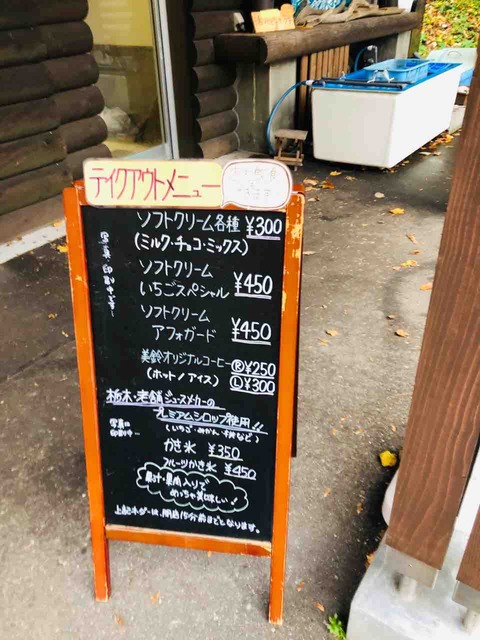 テイクアウトメニュー
ソフトクリーム各種 ¥300
(ミルク・チョコ・ミックス)
ソフトクリーム
いちごスペシャル ¥450
ソフトクリーム
アフォガード ¥450
美鈴オリジナルコーヒー Ⓡ¥250
(ホット/アイス) Ⓛ¥300
栃木・老舗ジュースメーカーの
プレミアムシロップ使用!!
(いちご・みかん・など)
写真は
印刷中…
かき氷 ¥350
フルーツかき氷 ¥450
果汁・果肉入りで
めっちゃ美味しい!
上記オーダーは、閉店15分前までとなります。